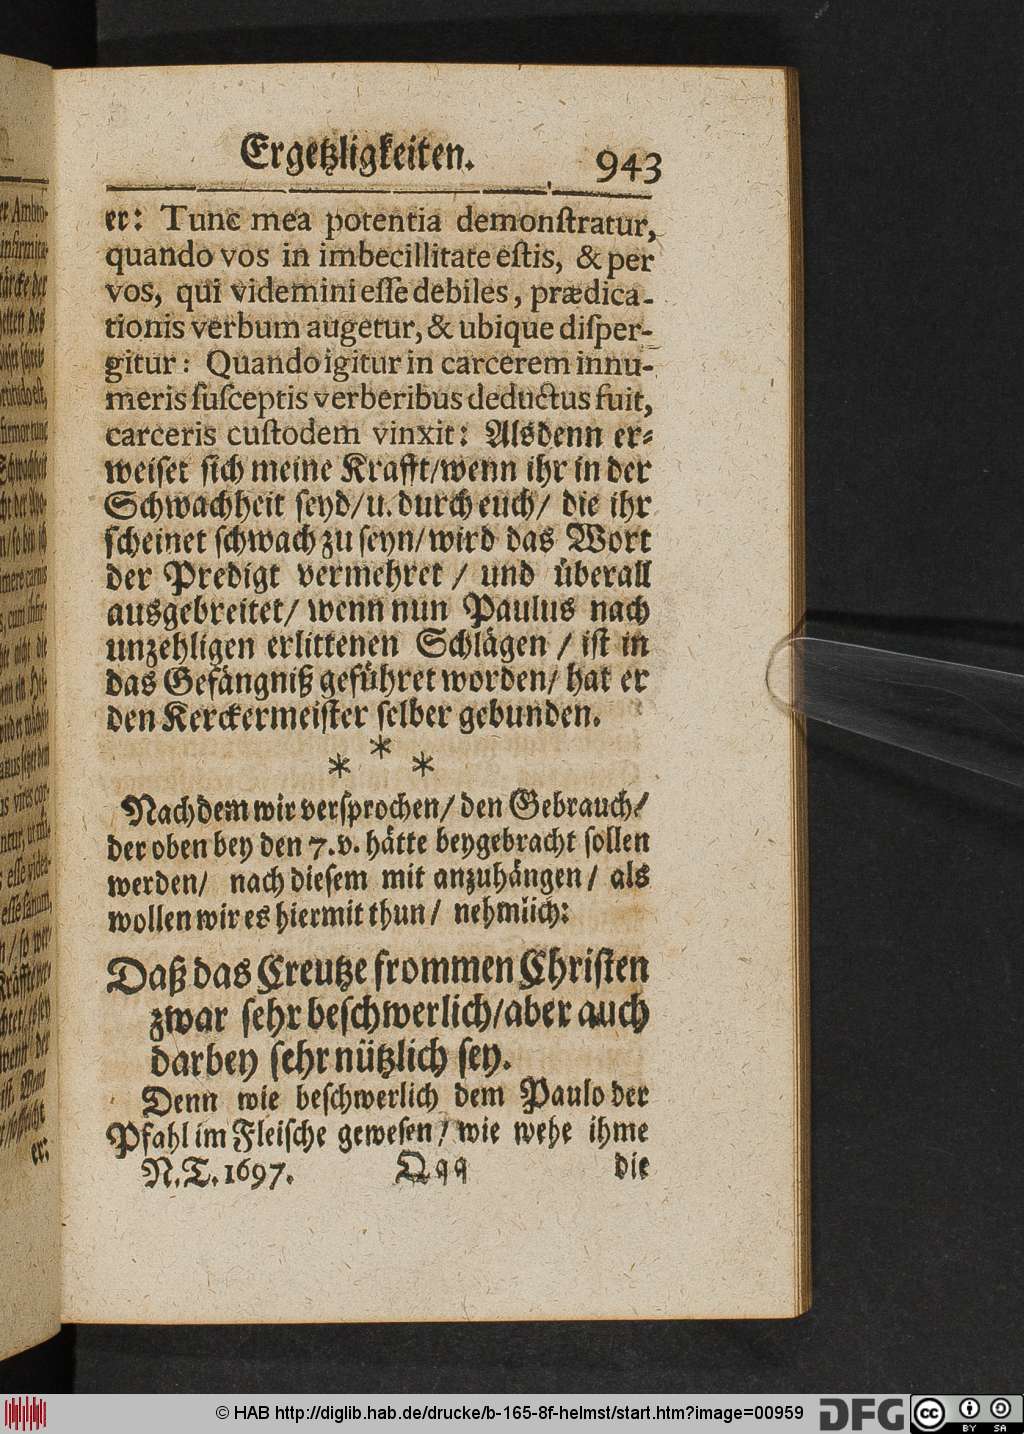 Ergetzligkeiten. 943
er: Tunc mea potentia demonſtratur,
quando vos in imbecillitate eſtis, & per
vos, qui videmini eſſe debiles, prædica-
tionis verbum augetur, & ubique diſper-
gitur: Quando igitur in carcerem innu-
meris ſuſceptis verberibus deductus fuit,
carceris cuſtodem vinxit: Alsdenn er-
weiſet ſich meine Krafft/ wenn ihr in der
Schwachheit ſeyd/ u. durch euch/ die ihr
ſcheinet ſchwach zu ſeyn/ wird das Wort
der Predigt vermehret / und überall
ausgebreitet/ wenn nun Paulus nach
unzehligen erlittenen Schlägen / iſt in
das Gefängniß geführet worden/ hat er
den Kerckermeiſter ſelber gebunden.
* * *
Nachdem wir verſprochen/ den Gebrauch/
der oben bey den 7. v. hätte beygebracht ſollen
werden/ nach dieſem mit anzuhängen/ als
wollen wir es hiermit thun/ nehmlich:
Daß das Creutze frommen Chriſten
zwar ſehr beſchwerlich/ aber auch
darbey ſehr nützlich ſey.
Denn wie beſchwerlich dem Paulo der
Pfahl im Fleiſche geweſen/ wie wehe ihme
N. T. 1697. Qqq die
er:
© HAB http://diglib.hab.de/drucke/b-165-8f-helmst/start.htm?image=00959 DFG cc BY SA